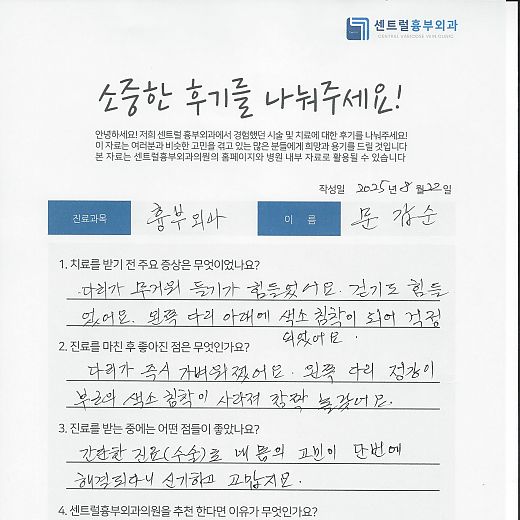 센트럴흉부외과
CENTRAL VARICOSE VEIN CLINIC
소중한 후기를 나눠주세요!
안녕하세요! 저희 센트럴 흉부외과에서 경험했던 시술 및 치료에 대한 후기를 나눠주세요!
이 자료는 여러분과 비슷한 고민을 겪고 있는 많은 분들에게 희망과 용기를 드릴 것입니다
본 자료는 센트럴흉부외과의원의 홈페이지와 병원 내부 자료로 활용될 수 있습니다
작성일 2025년 8월 22일
진료과목 흉부외과 이 름 문갑순
1. 치료를 받기 전 주요 증상은 무엇이었나요?
다리가 무거워 들기가 힘들었어요. 걷기도 힘들
었어요. 왼쪽 다리 아래에 색소 침착이 되어 걱정
되었어요.
2. 진료를 마친 후 좋아진 점은 무엇인가요?
다리가 즉시 가벼워졌어요. 왼쪽 다리 정강이
부근의 색소 침착이 사라져 깜짝 놀랐어요.
3. 진료를 받는 중에는 어떤 점들이 좋았나요?
간단한 진료(수술)로 내 몸의 고민이 단번에
해결되다니 신기하고 고맙지요.
4. 센트럴흉부외과의원을 추천 한다면 이유가 무엇인가요?